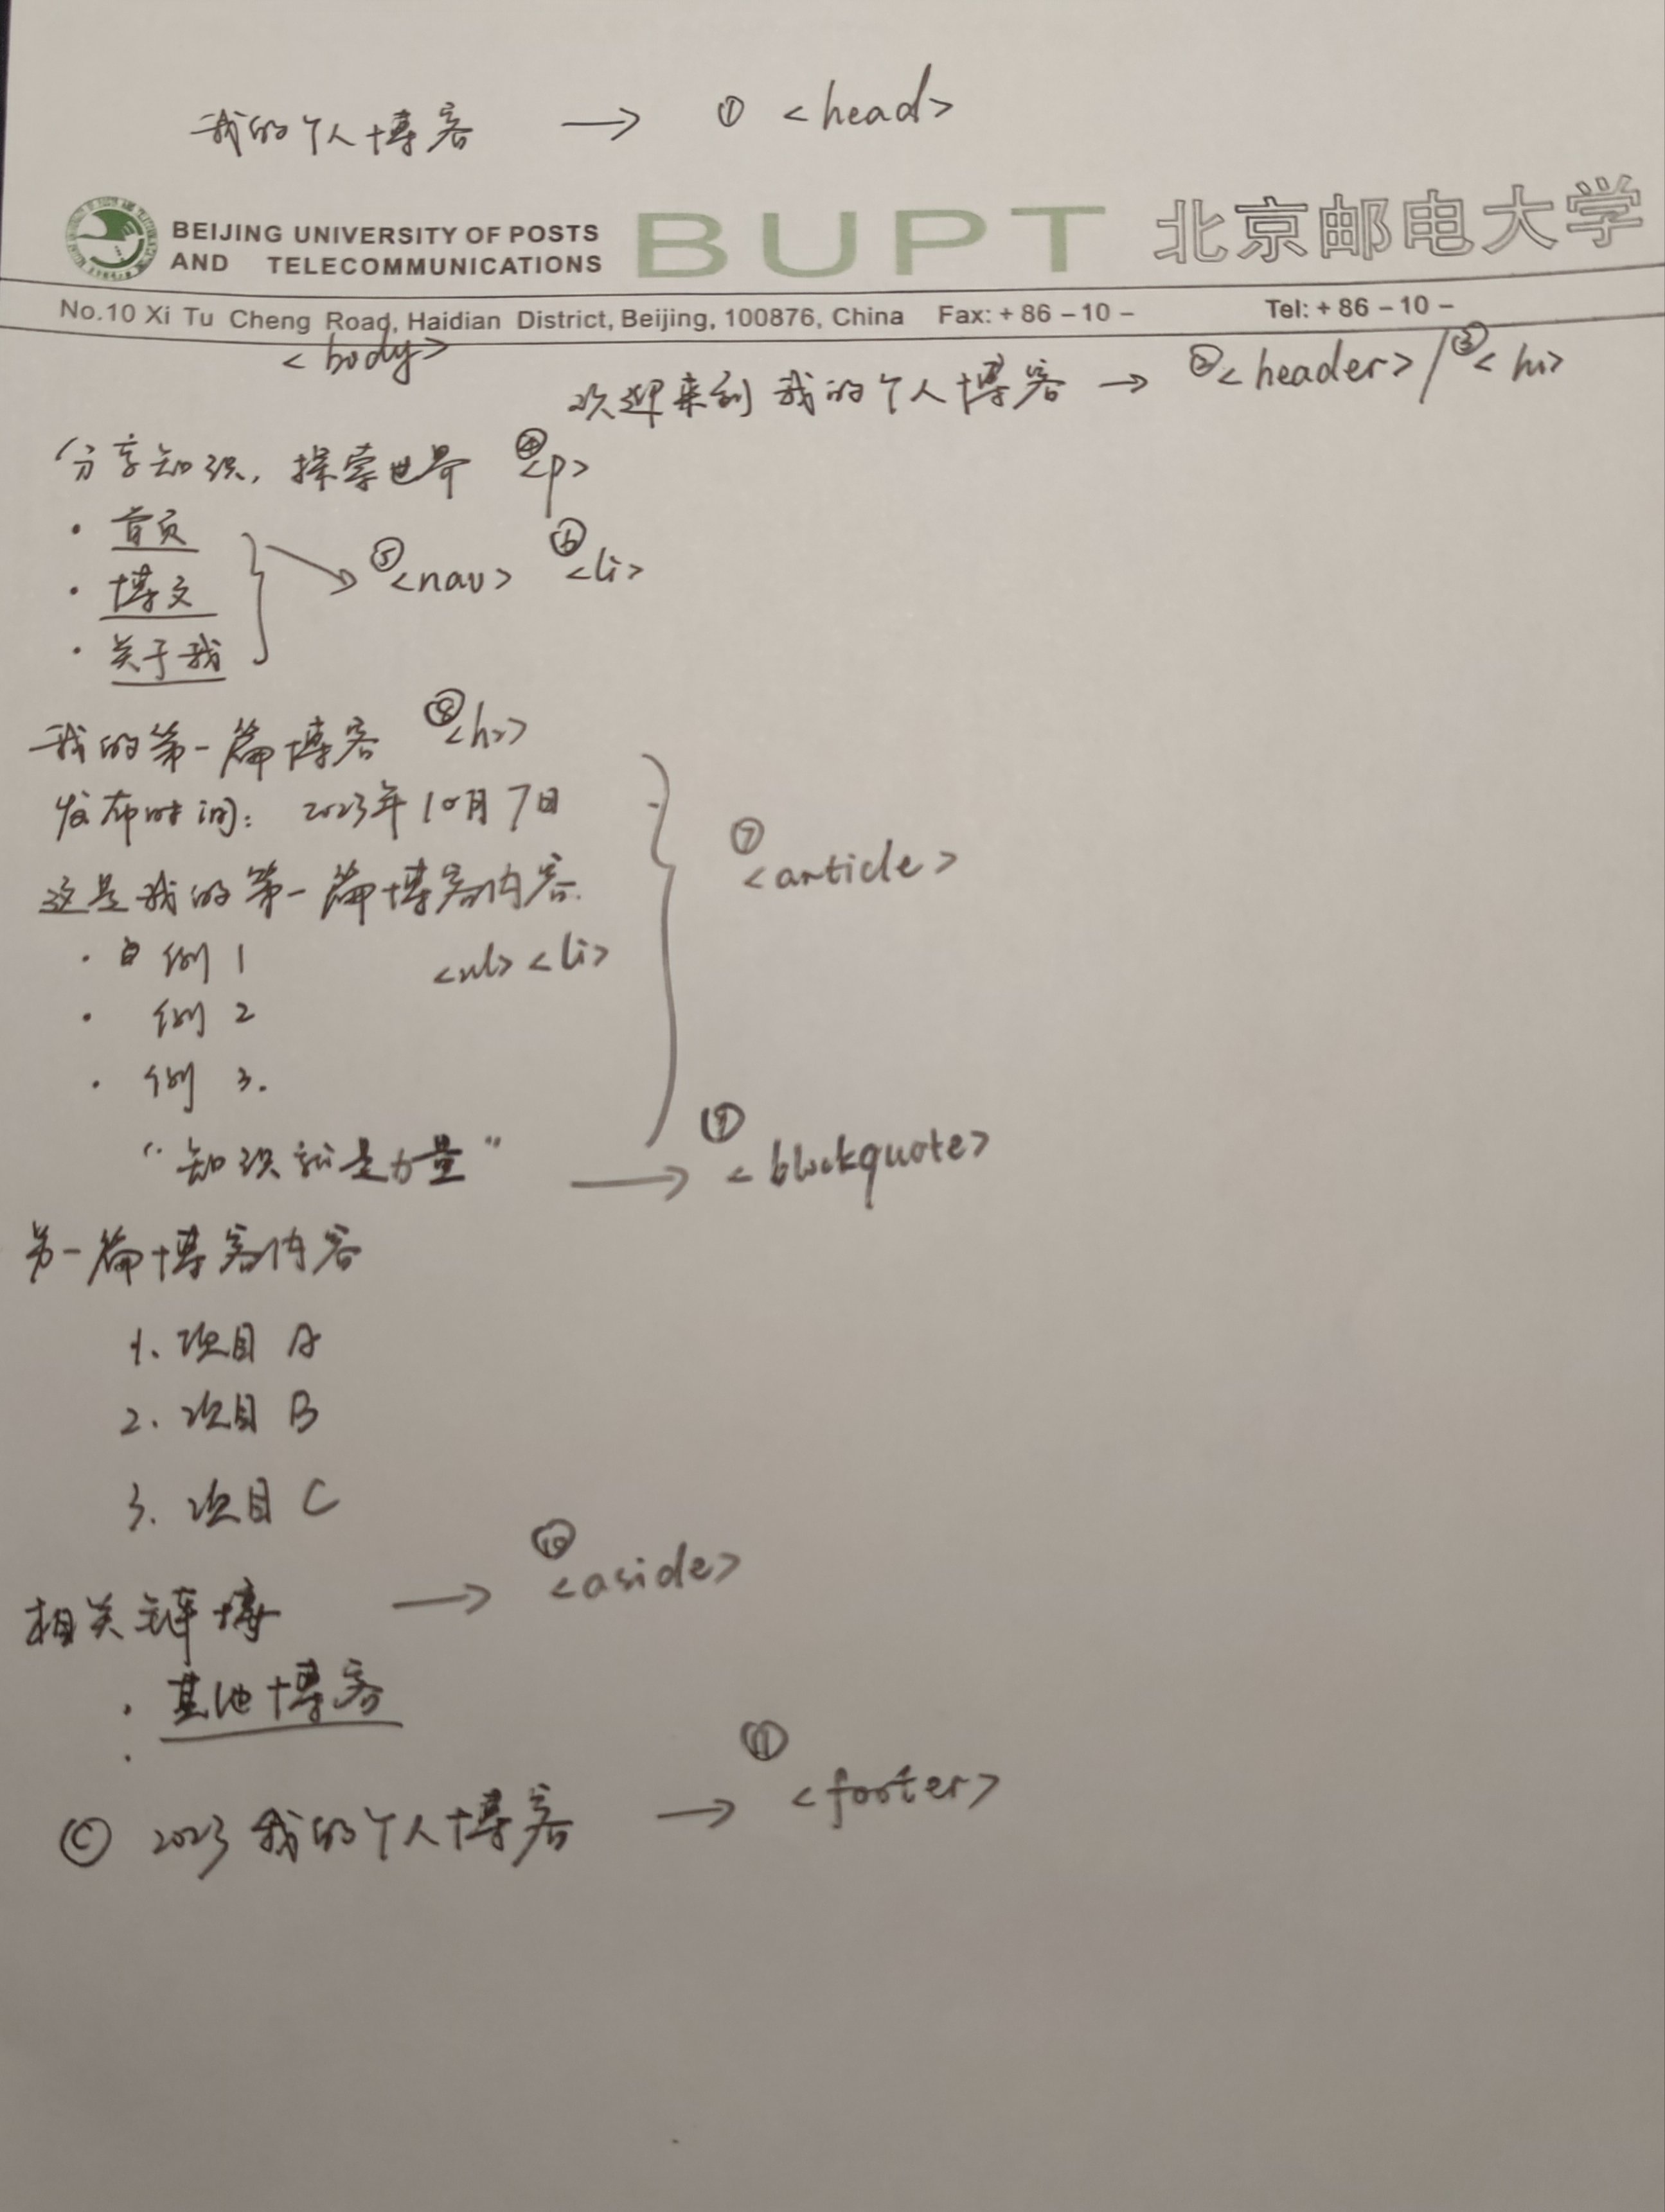 我的个人博客 → ① <head>
BEIJING UNIVERSITY OF POSTS AND TELECOMMUNICATIONS BUPT 北京邮电大学
No.10 Xi Tu Cheng Road, Haidian District, Beijing, 100876, China Fax: + 86 – 10 – Tel: + 86 – 10 –
<body>
欢迎来到我的个人博客 → ②<header> / ③<h1>
分享知识, 探索世界 ④<p>
· 首页
· 博文 ⑤<nav> ⑥<li>
· 关于我
我的第一篇博客 ⑧<h2>
发布时间: 2023年10月7日
这是我的第一篇博客内容. ⑦<article>
· 例 1 <ul><li>
· 例 2
· 例 3.
“知识就是力量” → ⑨<blockquote>
另一篇博客内容
1. 项目 A
2. 项目 B
3. 项目 C
相关链博 → ⑩<aside>
· 其他博客
·
© 2023 我的个人博客 → ⑪<footer>